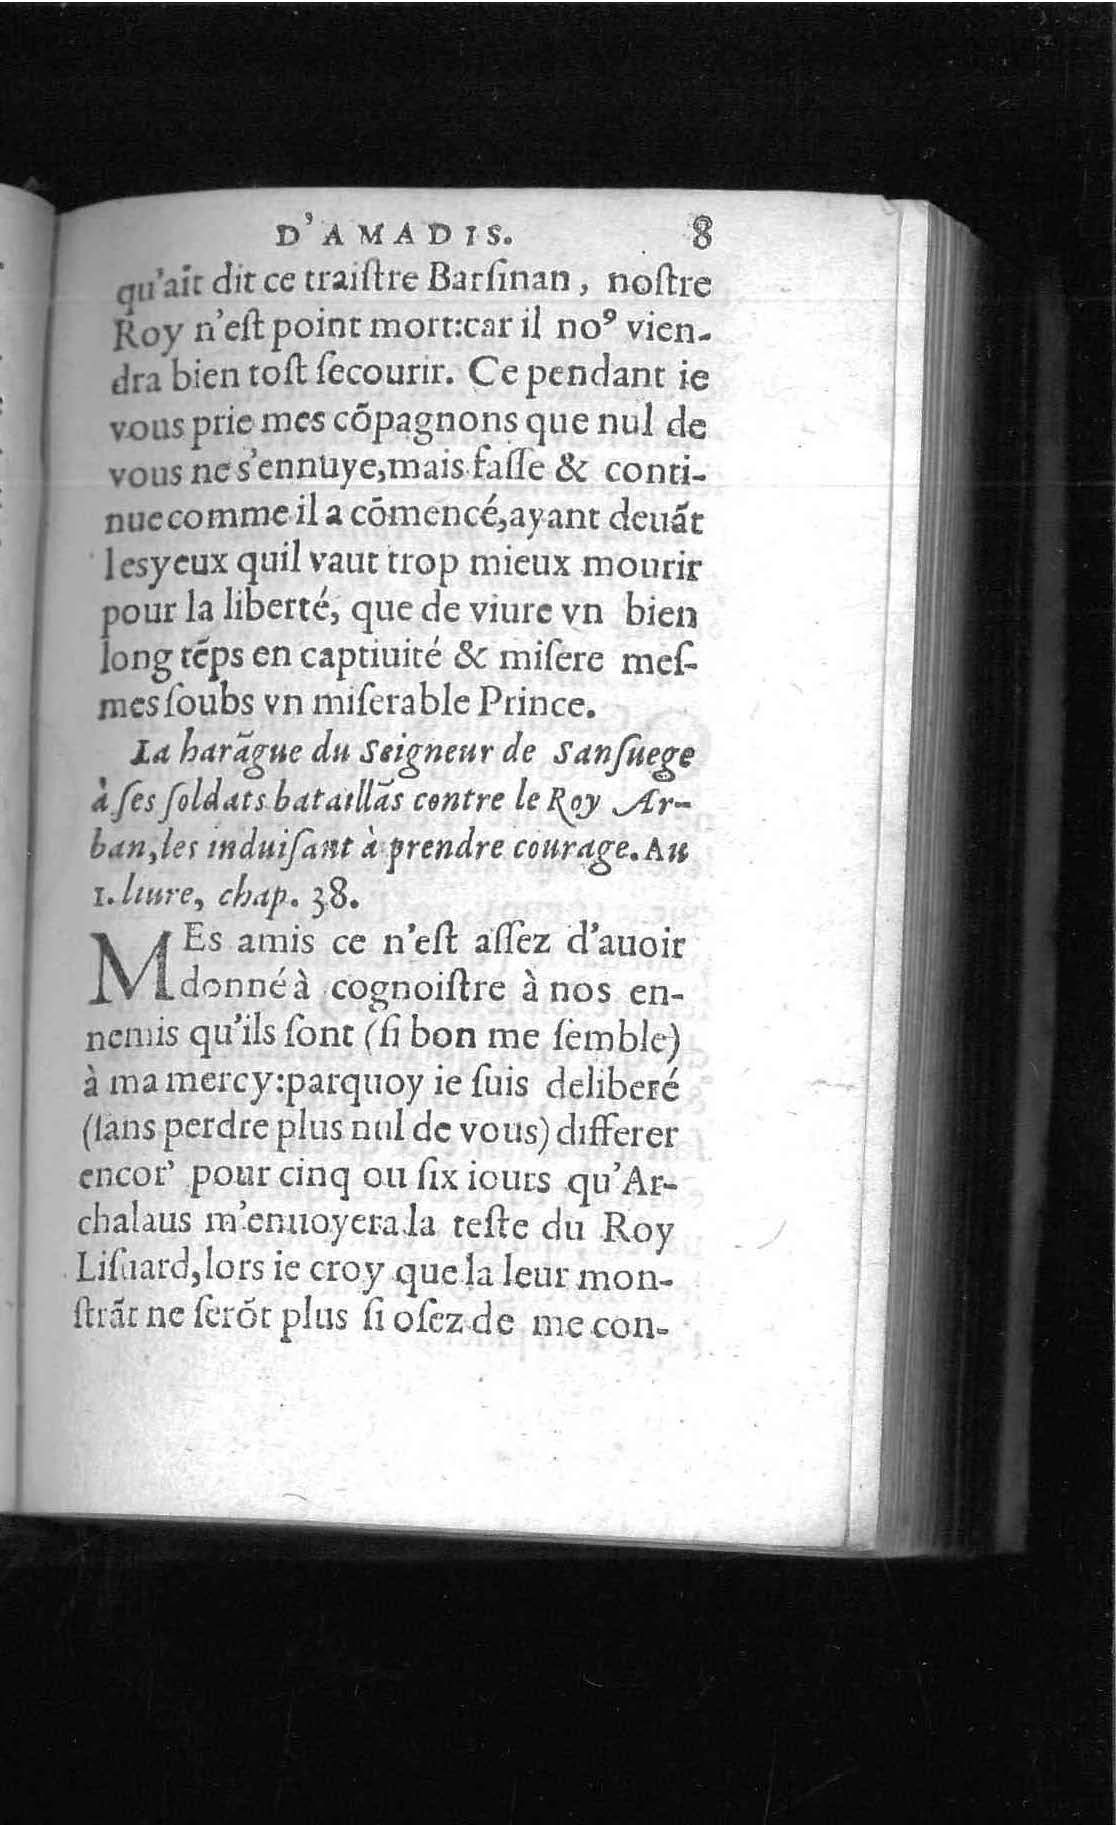 D'AMADIS. 8
qu'ait dit ce traiſtre Barſinan, noſtre
Roy n'eſt point mort:car il noꝰ vien-
dra bien toſt ſecourir. Ce pendant ie
vous prie mes cõpagnons que nul de
vous ne s'ennuye,mais faſſe & conti-
nue comme il a cõmencé,ayant deuãt
les yeux quil vaut trop mieux mourir
pour la liberté, que de viure vn bien
long tẽps en captiuité & miſere meſ-
mes ſoubs vn miſerable Prince.
La harãgue du Seigneur de Sanſuege
à ſes ſoldats bataillãs contre le Roy Ar-
ban,les induiſant à prendre courage. Au
1. liure, chap. 38.
MEs amis ce n'eſt aſſez d'auoir
donné à cognoiſtre à nos en-
nemis qu'ils ſont (ſi bon me ſemble)
à ma mercy:parquoy ie ſuis deliberé
(ſans perdre plus nul de vous) differer
encor' pour cinq ou ſix iours qu'Ar-
chalaus m'enuoyera la teſte du Roy
Liſuard,lors ie croy que la leur mon-
ſtrãt ne ſerõt plus ſi oſez de me con-